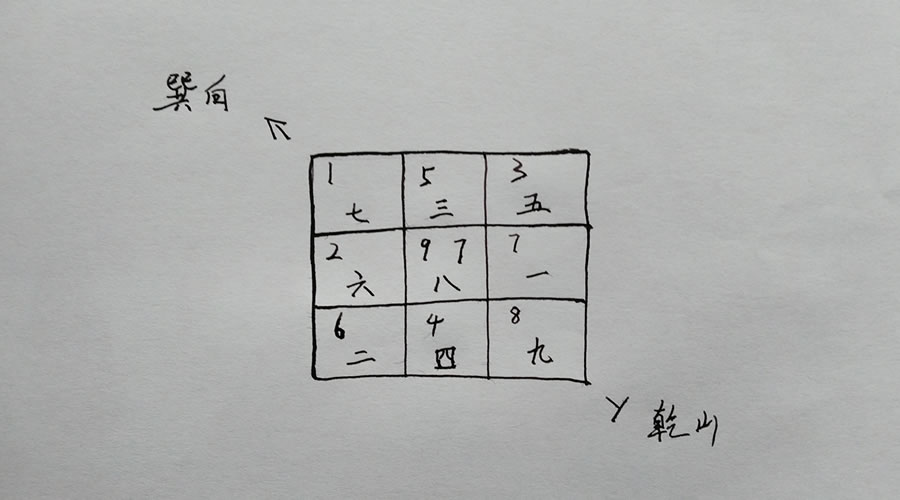 巽向
1 5 3
七 三 五
2 9 7 7
六 八 一
6 4 8
二 四 九
乾山